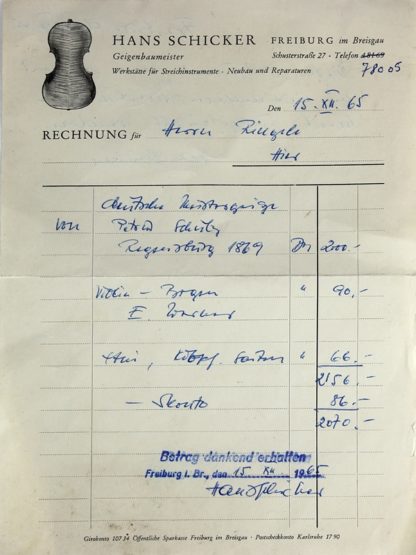 HANS SCHICKER
Geigenbaumeister
Werkstätte für Streichinstrumente · Neubau und Reparaturen
FREIBURG im Breisgau
Schusterstraße 27 · Telefon 48169
78005
Den 15. XII. 65
RECHNUNG für Herrn
Hier
deutsche Meistergeige
von Peter Schulz
Regensburg 1869 DM 2000.-
Violin - Bogen " 90.-
E. Werner
Etui, " 66.-
2156.-
- Skonto 86.-
2070.-
Betrag dankend erhalten
Freiburg i. Br., den 15. XII. 1965
Hans Schicker
Girokonto 10734 Öffentliche Sparkasse Freiburg im Breisgau · Postscheckkonto Karlsruhe 1790